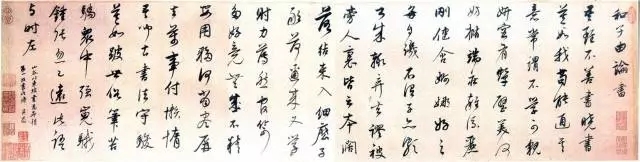 和子由論書
吾雖不善書曉書
莫如我苟能通其
意常謂不學可貌
妍容有顰璧美何
妨橢端莊雜流麗
剛健含婀娜好之
每自譏不謂子亦頗
書成輒棄去謬被
旁人裹皆云本闊
落結束入細麼子
邇來又學
射力薄愁官笴
多好竟無成不精
安用夥何當盡屏
去萬事付懶惰
吾聞古書法守駿
莫如跛世俗筆苦
驕衆中強嵬騀
鍾張忽已遠此語
與時左